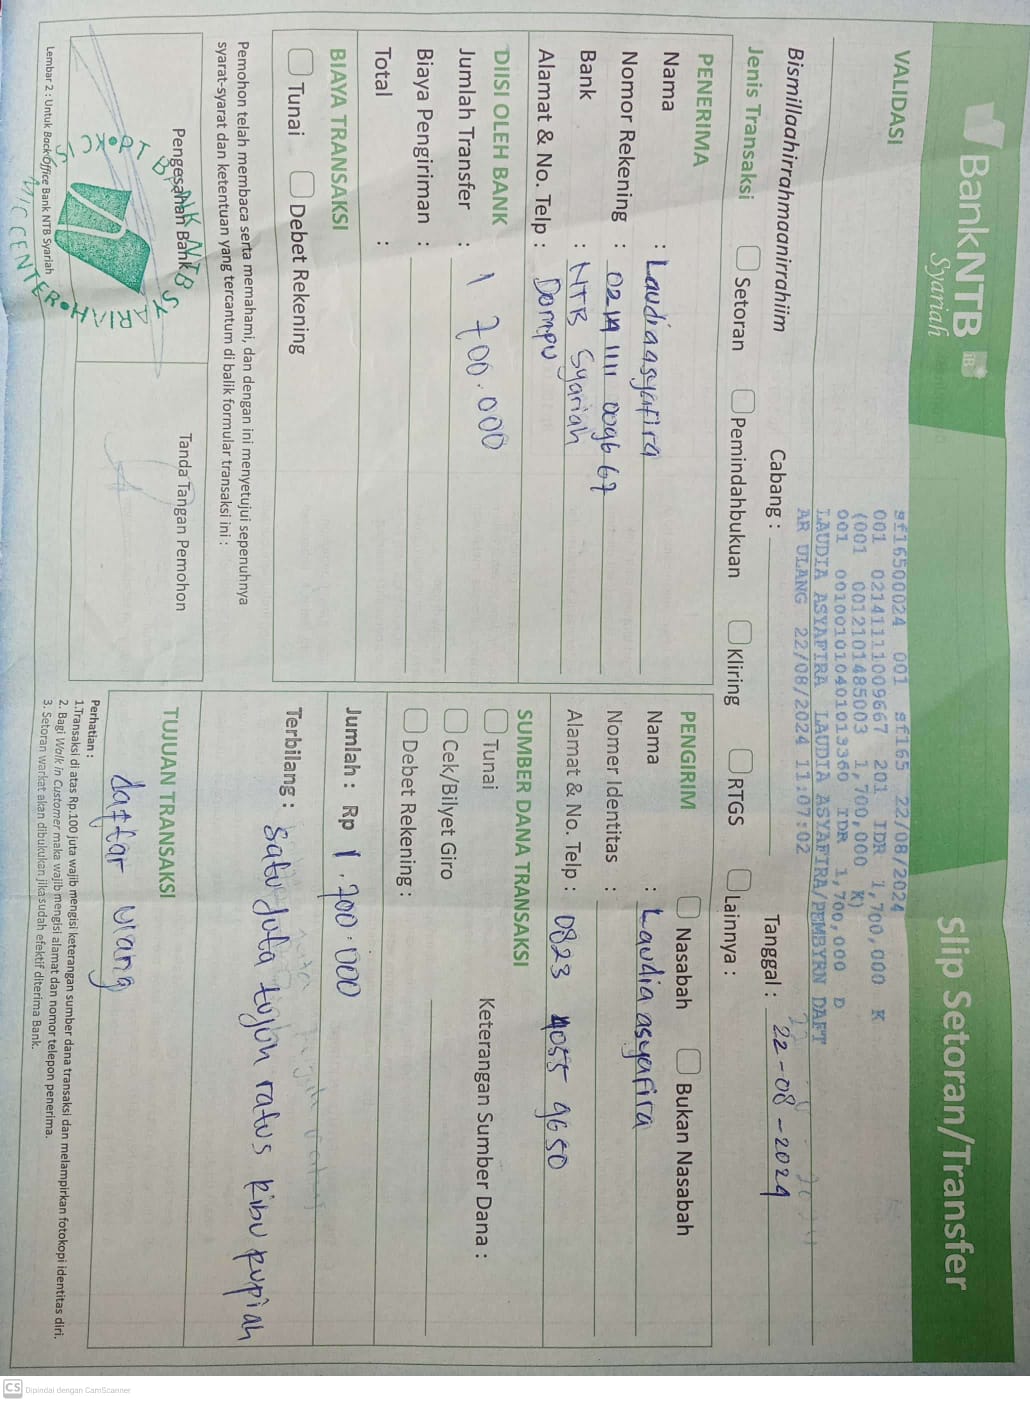 BankNTB iB
Syariah
Slip Setoran/Transfer
VALIDASI
sf16500024 001 sf165 22/08/2024
001 0214111009667 201 IDR 1,700,000 K
(001 0012101485003 1,700,000 K)
001 001001010401013360 IDR 1,700,000 D
LAUDIA ASYAFIRA LAUDIA ASYAFIRA/PEMBYRN DAFT
AR ULANG 22/08/2024 11:07:02
Bismillaahirrahmaanirrahiim
Cabang :
Tanggal : 22-08-2024
Jenis Transaksi Setoran Pemindahbukuan Kliring RTGS Lainnya :
PENERIMA
Nama : Laudiaasyafira
Nomor Rekening : 0214 1111 009667
Bank : NTB Syariah
Alamat & No. Telp : Dompu
PENGIRIM Nasabah Bukan Nasabah
Nama : Laudia asyafira
Nomer Identitas :
Alamat & No. Telp : 0823 4055 9650
DIISI OLEH BANK
Jumlah Transfer : 1 700.000
Biaya Pengiriman :
Total :
SUMBER DANA TRANSAKSI
Tunai Keterangan Sumber Dana :
Cek/Bilyet Giro
Debet Rekening :
BIAYA TRANSAKSI
Tunai Debet Rekening
Jumlah : Rp 1.700.000
Terbilang : Satu Juta tujuh ratus Ribu rupiah
Pemohon telah membaca serta memahami, dan dengan ini menyetujui sepenuhnya
syarat-syarat dan ketentuan yang tercantum di balik formular transaksi ini :
Pengesahan Bank
Tanda Tangan Pemohon
PT BANK NTB SYARIAH
TUJUAN TRANSAKSI
daftar ulang
Perhatian :
1.Transaksi di atas Rp.100 juta wajib mengisi keterangan sumber dana transaksi dan melampirkan fotokopi identitas diri.
2. Bagi Walk in Customer maka wajib mengisi alamat dan nomor telepon penerima.
3. Setoran warkat akan dibukukan jika sudah efektif diterima Bank.
Lembar 2 : Untuk Back Office Bank NTB Syariah
CS Dipindai dengan CamScanner